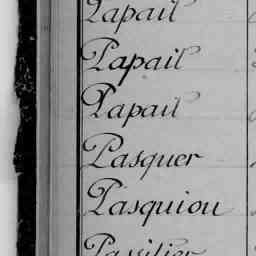 Papail
Papail
Papail
Pasquer
Pasquiou
Passilier